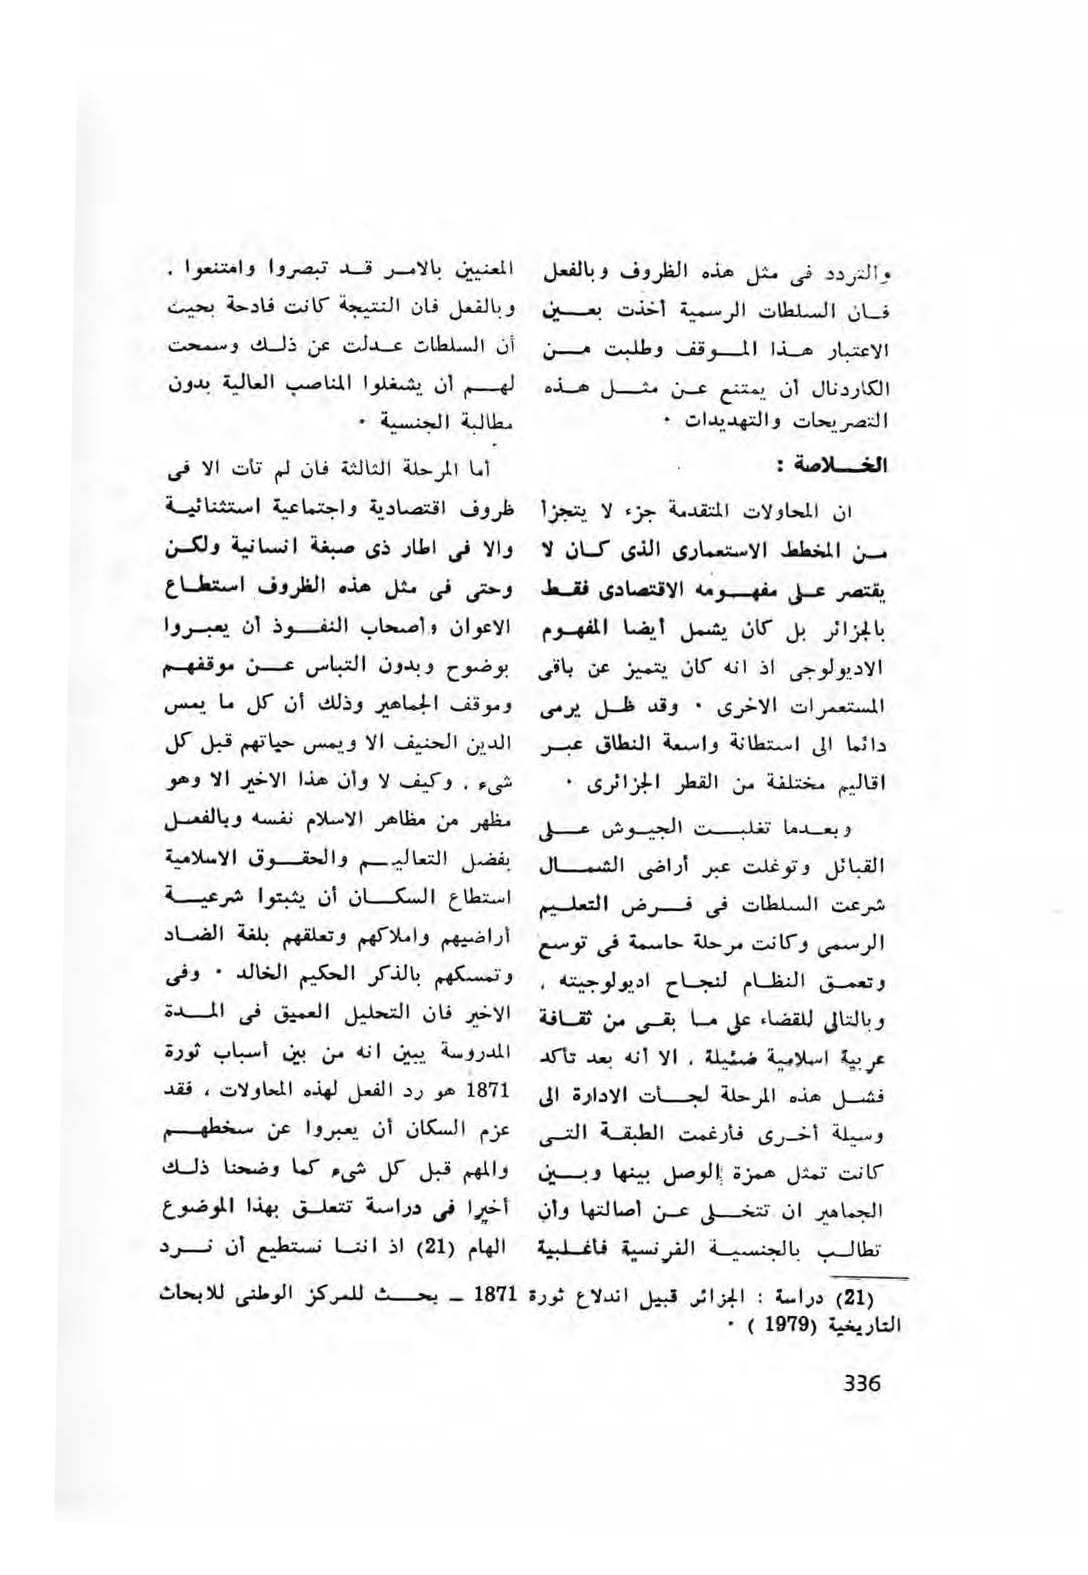 والتردد فى مثل هذه الظروف وبالفعل
فان السلطات الرسمية أخذت بعين
الاعتبار هذا الموقف وطلبت من
الكاردنال أن يمتنع عن مثل هذه
التصريحات والتهديدات ٠
الخلاصة :
ان المحاولات المتقدمة جزء لا يتجزأ
من المخطط الاستعمارى الذى كان لا
يقتصر على مفهومه الاقتصادى فقط
بالجزائر بل كان يشمل أيضا المفهوم
الاديولوجى اذ انه كان يتميز عن باقى
المستعمرات الاخرى ٠ وقد ظل يرمى
دائما الى استطانة واسعة النطاق عبر
اقاليم مختلفة من القطر الجزائرى ٠
وبعدما تغلبت الجيوش على
القبائل وتوغلت عبر أراضى الشمال
شرعت السلطات فى فرض التعليم
الرسمى وكانت مرحلة حاسمة فى توسع
وتعمق النظام لنجاح اديولوجيته ،
وبالتالى للقضاء على ما بقى من ثقافة
عربية اسلامية ضئيلة ، الا أنه بعد تأكد
فشل هذه المرحلة لجأت الادارة الى
وسيلة أخرى فأرغمت الطبقة التى
كانت تمثل همزة الوصل بينها وبين
الجماهير ان تتخلى عن أصالتها وأن
تطالب بالجنسية الفرنسية فأغلبية
المعنيين بالامر قد تبصروا وامتنعوا .
وبالفعل فان النتيجة كانت فادحة بحيث
أن السلطات عدلت عن ذلك وسمحت
لهم أن يشغلوا المناصب العالية بدون
مطالبة الجنسية ٠
أما المرحلة الثالثة فان لم تأت الا فى
ظروف اقتصادية واجتماعية استثنائية
والا فى اطار ذى صبغة انسانية ولكن
وحتى فى مثل هذه الظروف استطاع
الاعوان وأصحاب النفوذ أن يعبروا
بوضوح وبدون التباس عن موقفهم
وموقف الجماهير وذلك أن كل ما يمس
الدين الحنيف الا ويمس حياتهم قبل كل
شىء . وكيف لا وأن هذا الاخير الا وهو
مظهر من مظاهر الاسلام نفسه وبالفعل
بفضل التعاليم والحقوق الاسلامية
استطاع السكان أن يثبتوا شرعية
أراضيهم واملاكهم وتعلقهم بلغة الضاد
وتمسكهم بالذكر الحكيم الخالد ٠ وفى
الاخير فان التحليل العميق فى المدة
المدروسة يبين انه من بين أسباب ثورة
1871 هو رد الفعل لهذه المحاولات ، فقد
عزم السكان أن يعبروا عن سخطهم
والمهم قبل كل شىء كما وضحنا ذلك
أخيرا فى دراسة تتعلق بهذا الموضوع
الهام (21) اذ اننا نستطيع أن نرد
(21) دراسة : الجزائر قبيل اندلاع ثورة 1871 – بحث للمركز الوطنى للابحاث
التاريخية (1979 ) ٠
336